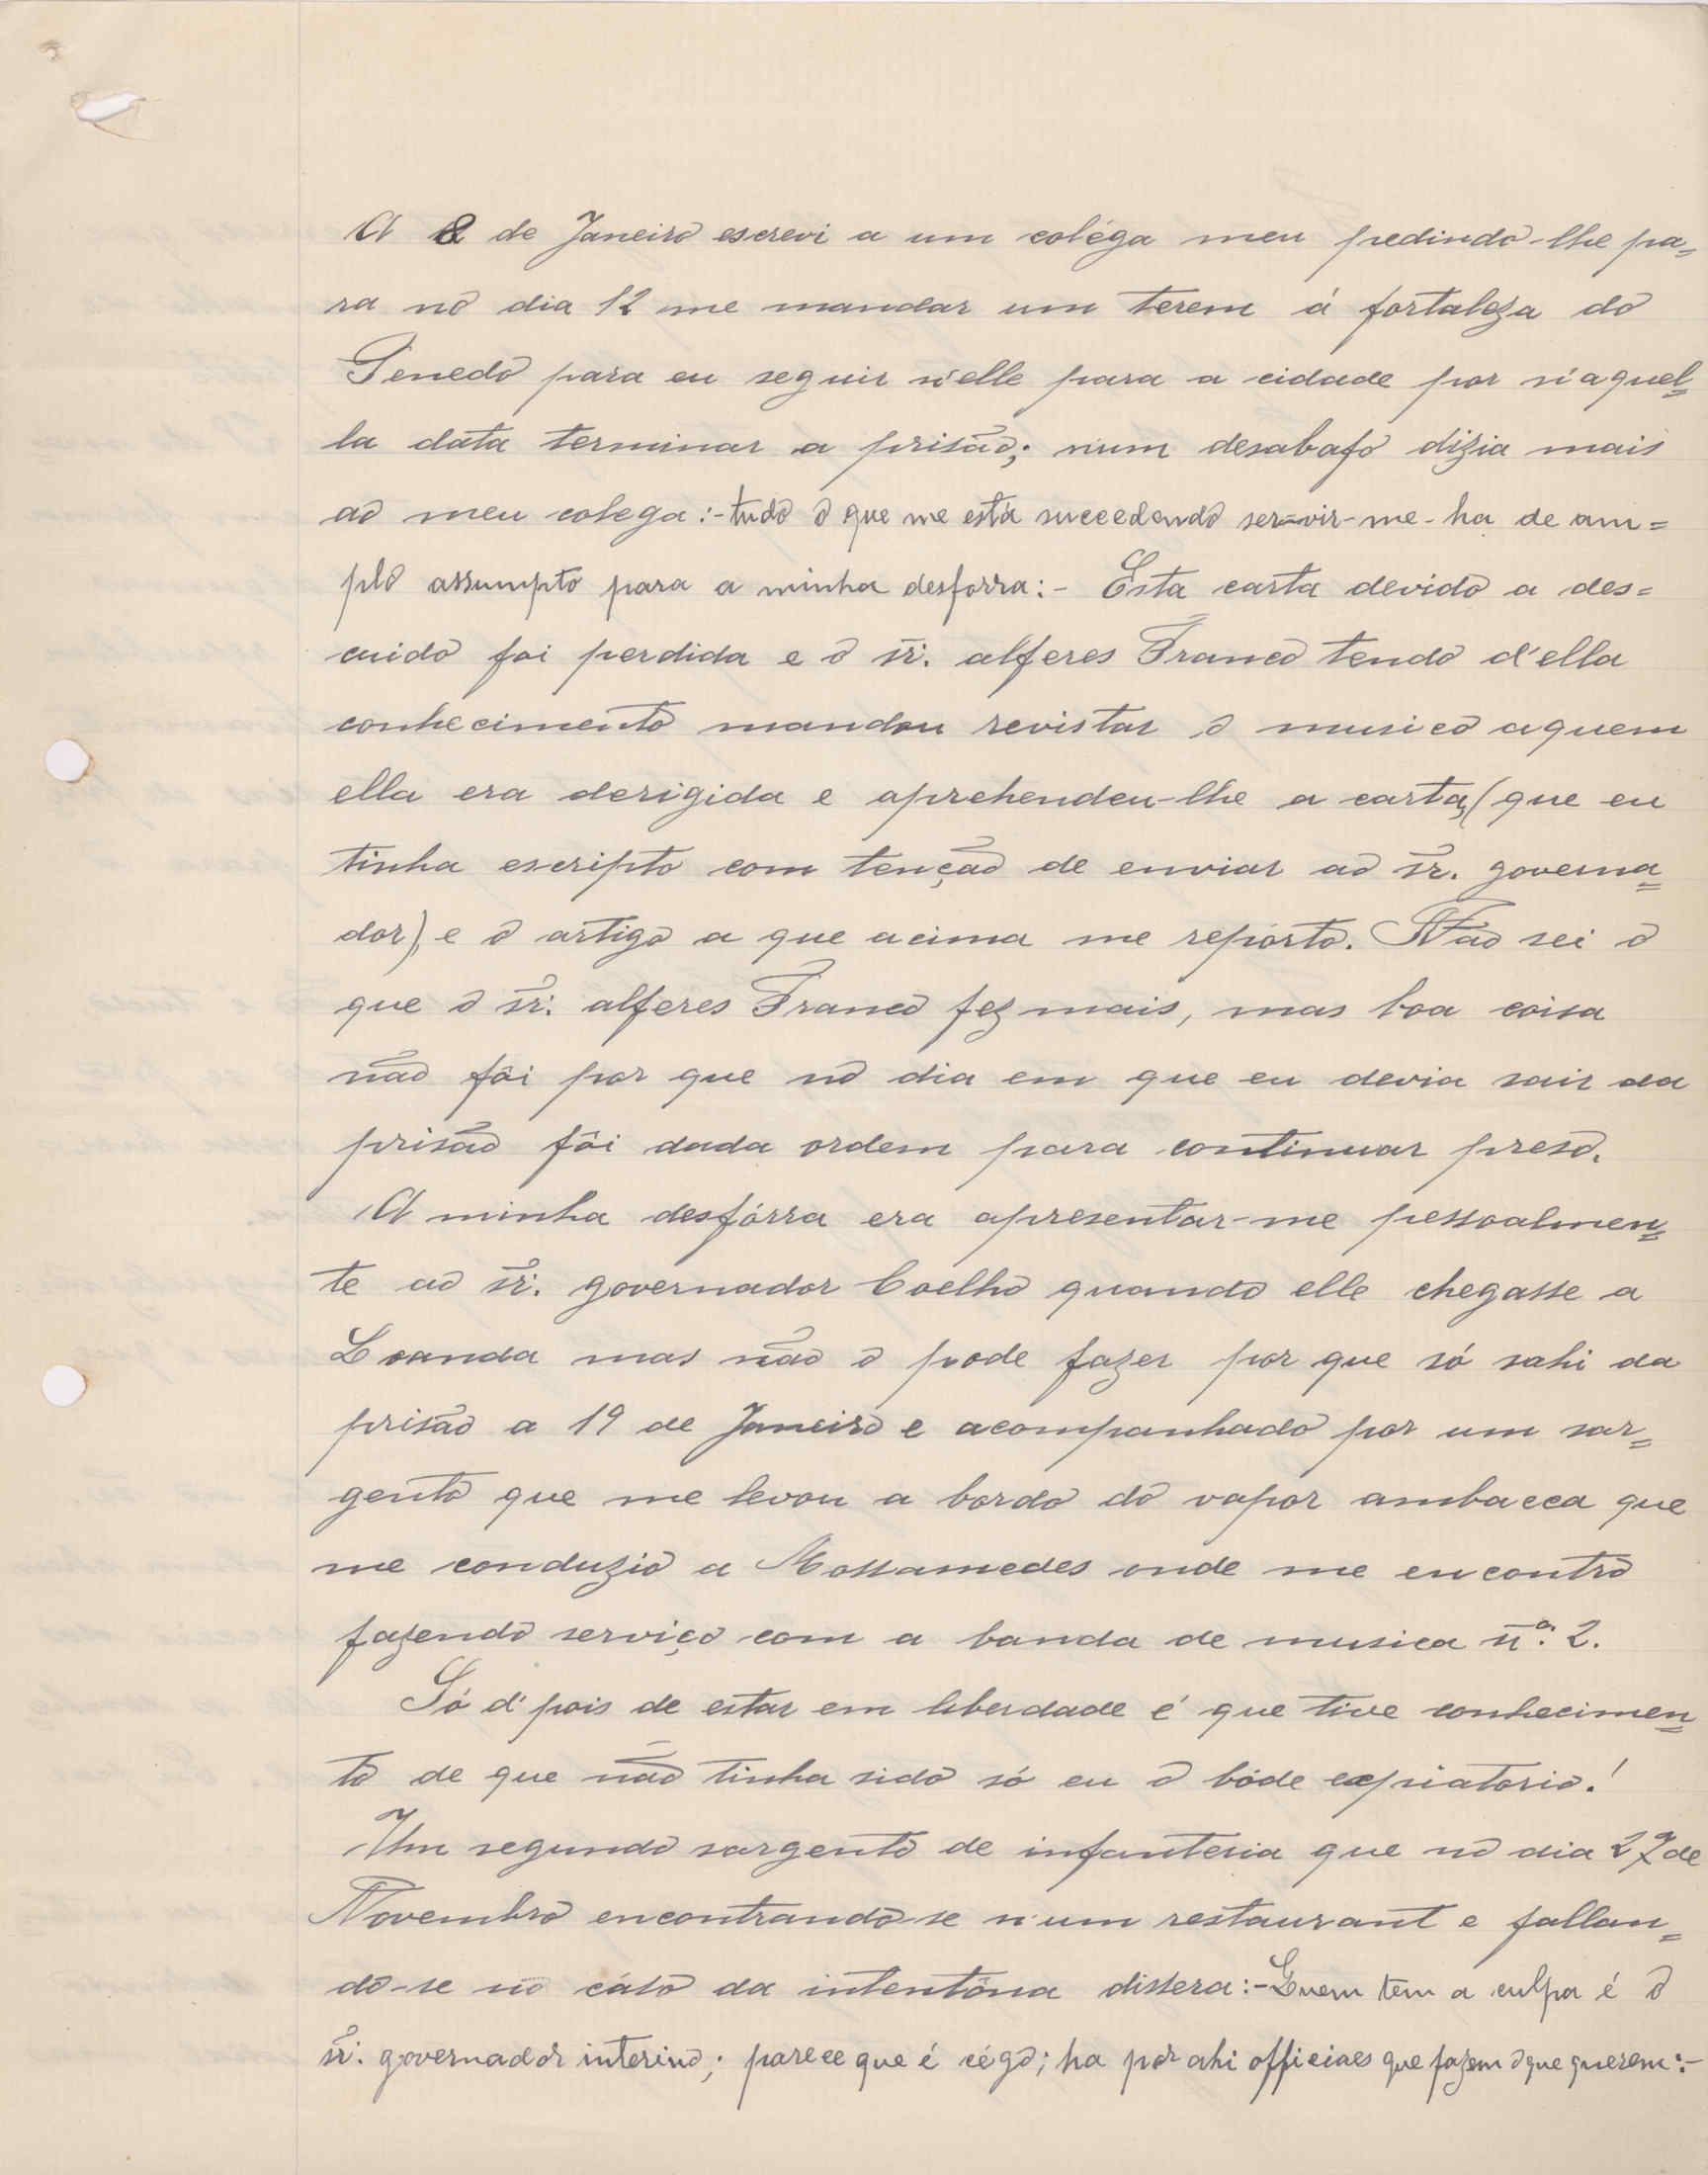 A 8 de Janeiro escrevi a um coléga meu pedindo-lhe pa=
ra no dia 12 me mandar um terem á fortaleza do
Penedo para eu seguir n'elle para a cidade por n'aquel=
la data terminar a prisão; num desabafo dizia mais
ao meu colega:- tudo o que me está succedendo servir-me-ha de am=
plo assumpto para a minha desforra:- Esta carta devido a des=
cuido foi perdida e o sr. alferes Franco tendo d'ella
conhecimento mandou revistar o musico aquem
ella era derigida e aprehendeu-lhe a carta, (que eu
tinha escripto com tenção de enviar ao sr. governa=
dor), e o artigo a que acima me reporto. Não sei o
que o sr. alferes Franco fez mais, mas boa coisa
não fôi por que no dia em que eu devia sair da
prisão fôi dada ordem para continuar preso.
A minha desfórra era apresentar-me pessoalmen=
te ao sr. governador Coelho quando elle chegasse a
Loanda mas não o pode fazer por que só sahi da
prisão a 19 de Janeiro e acompanhado por um sar=
gento que me levou a bordo do vapor ambacca que
me conduzio a Mossamedes onde me encontro
fazendo serviço com a banda de musica n.º 2.
Só d'pois de estar em liberdade é que tive conhecimen=
to de que não tinha sido só eu o bóde expiatorio!
Um segundo sargento de infanteria que no dia 27 de
Novembro encontrando-se n'um restaurant e fallan=
do-se no cáso da intentôna dissera:- Quem tem a culpa é o
sr. governador interino; parece que é cégo; ha por ahi officiaes que fazem o que querem:-